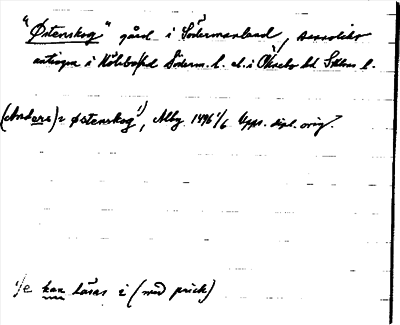 "Østenskog" gård i Södermanland, sannolikt
antingen i Hölebo hd Söderm. l. el. i Öknebo hd Sthlms l.
(Anders) i østenskog¹⁾, Alby 1496 1/6 Upps. dipl. orig.
¹⁾e kan läsas i (med prick)